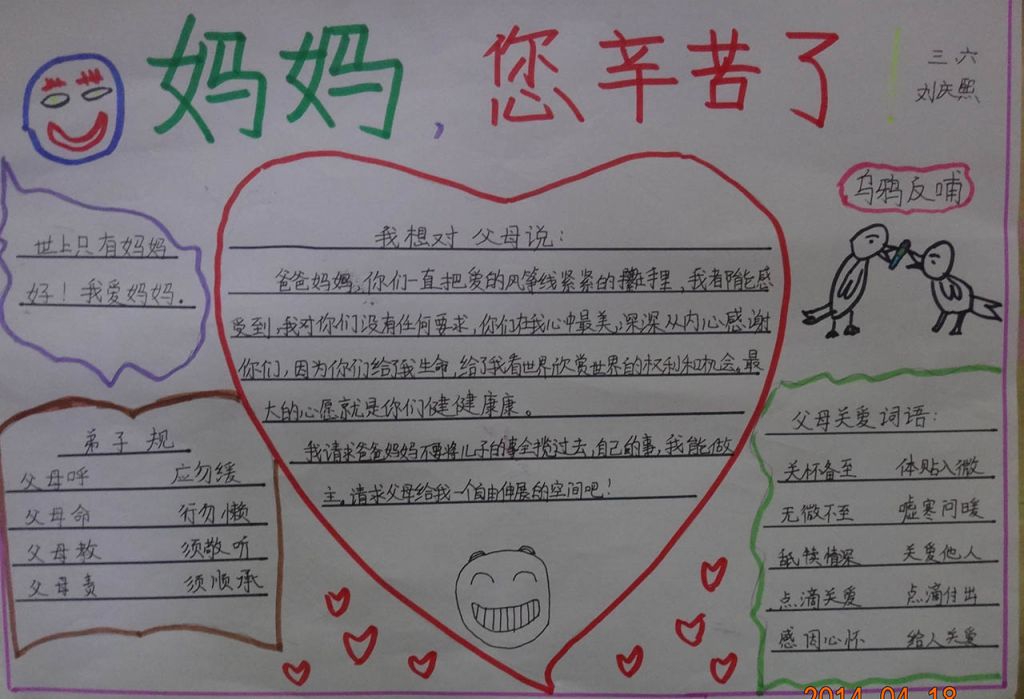 妈妈，您辛苦了
三.六
刘庆熙
世上只有妈妈
好！我爱妈妈.
乌鸦反哺
我想对父母说：
爸爸妈妈，你们一直把爱的风筝线紧紧的攥手里，我都能感
受到，我对你们没有任何要求，你们在我心中最美，深深从内心感谢
你们，因为你们给了我生命，给了我看世界欣赏世界的权利和机会。最
大的心愿就是你们健健康康。
我请求爸爸妈妈不要将儿子的事全揽过去，自己的事，我能做
主。请求父母给我一个自由伸展的空间吧！
弟子规
父母呼 应勿缓
父母命 行勿懒
父母教 须敬听
父母责 须顺承
父母关爱词语：
关怀备至 体贴入微
无微不至 嘘寒问暖
舐犊情深 关爱他人
点滴关爱 点滴付出
感因心怀 给人关爱
2014.04.18